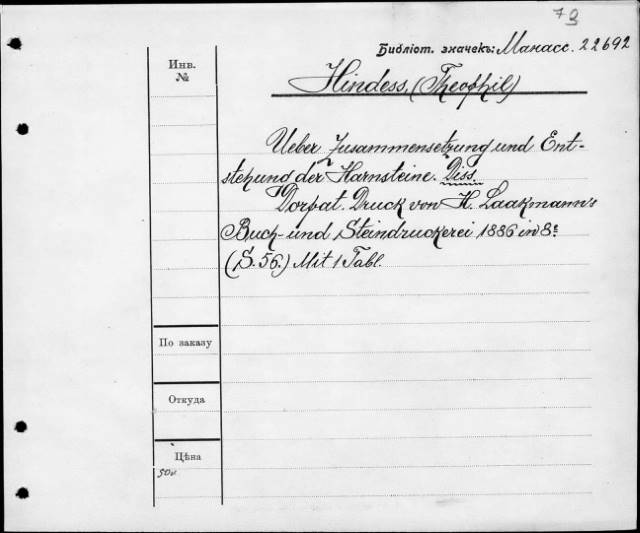 73
Библіот. значекъ: Манасс. 22692
Инв.
№
Hindess, (Theophil)
Ueber Zusammensetzung und Ent-
stehung der Harnsteine. Diss.
Dorpat. Druck von H. Laakmann's
Buch- und Steindruckerei 1886 in 8º
(S. 56.) Mit 1 Tabl.
По заказу
Откуда
Цѣна